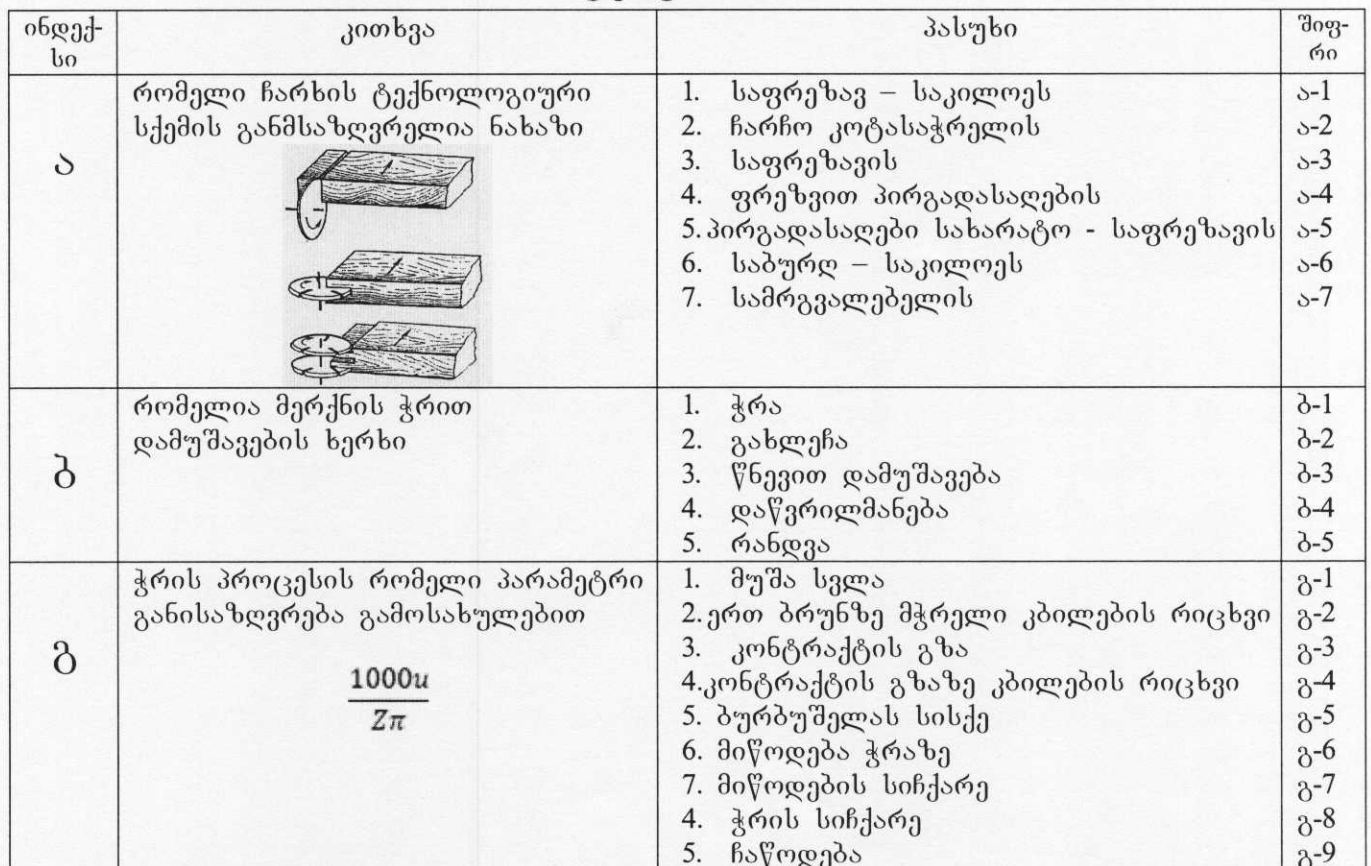 ინდექ-
სი
კითხვა
პასუხი
შიფ-
რი
ა
რომელი ჩარხის ტექნოლოგიური
სქემის განმსაზღვრელია ნახაზი
1. საფრეზავ – საკილოეს
2. ჩარჩო კოტასაჭრელის
3. საფრეზავის
4. ფრეზვით პირგადასაღების
5.პირგადასაღები სახარატო - საფრეზავის
6. საბურღ – საკილოეს
7. სამრგვალებელის
ა-1
ა-2
ა-3
ა-4
ა-5
ა-6
ა-7
ბ
რომელია მერქნის ჭრით
დამუშავების ხერხი
1. ჭრა
2. გახლეჩა
3. წნევით დამუშავება
4. დაწვრილმანება
5. რანდვა
ბ-1
ბ-2
ბ-3
ბ-4
ბ-5
გ
ჭრის პროცესის რომელი პარამეტრი
განისაზღვრება გამოსახულებით
1000u
Zπ
1. მუშა სვლა
2.ერთ ბრუნზე მჭრელი კბილების რიცხვი
3. კონტრაქტის გზა
4.კონტრაქტის გზაზე კბილების რიცხვი
5. ბურბუშელას სისქე
6. მიწოდება ჭრაზე
7. მიწოდების სიჩქარე
4. ჭრის სიჩქარე
5. ჩაწოდება
გ-1
გ-2
გ-3
გ-4
გ-5
გ-6
გ-7
გ-8
გ-9